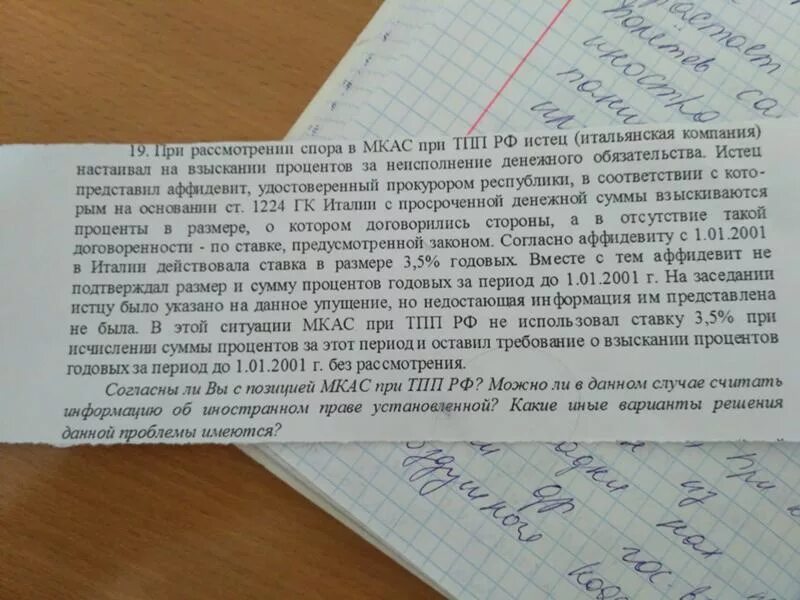 растает
полётов са
иностра
19. При рассмотрении спора в МКАС при ТПП РФ истец (итальянская компания)
настаивал на взыскании процентов за неисполнение денежного обязательства. Истец
представил аффидевит, удостоверенный прокурором республики, в соответствии с кото-
рым на основании ст. 1224 ГК Италии с просроченной денежной суммы взыскиваются
проценты в размере, о котором договорились стороны, а в отсутствие такой
договоренности - по ставке, предусмотренной законом. Согласно аффидевиту с 1.01.2001
в Италии действовала ставка в размере 3,5% годовых. Вместе с тем аффидевит не
подтверждал размер и сумму процентов годовых за период до 1.01.2001 г. На заседании
истцу было указано на данное упущение, но недостающая информация им представлена
не была. В этой ситуации МКАС при ТПП РФ не использовал ставку 3,5% при
исчислении суммы процентов за этот период и оставил требование о взыскании процентов
годовых за период до 1.01.2001 г. без рассмотрения.
Согласны ли Вы с позицией МКАС при ТПП РФ? Можно ли в данном случае считать
информацию об иностранном праве установленной? Какие иные варианты решения
данной проблемы имеются?
при
из
др гос-в